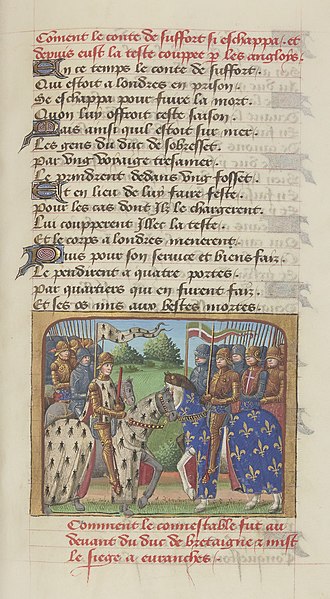 Comment le conte de suffort si eschappa . et
depuis eust la teste couppee p les anglois .
En ce temps le conte de suffort .
Qui estoit a londres en prison
Se eschappa pour fuire la mort .
Quon luy offroit ceste saison .
Mais ainsi quil estoit sur mer .
Les gens du duc de sobresset
Par ung voyage tresamer
Le prindrent dedans ung fosset
Et en lieu de luy faire feste .
Pour les cas dont Ilz le chargerent
Luy coupperent Illec la teste .
Et le corps a londres menerent .
Puis pour son service et biens faiz .
Le pendirent a quatre portes .
Par quartiers qui en furent faiz
Et ses os mis aux bestes mortes .
Comment le connestable fut au
devant du duc de bretaigne z mist
le siege a euranches .